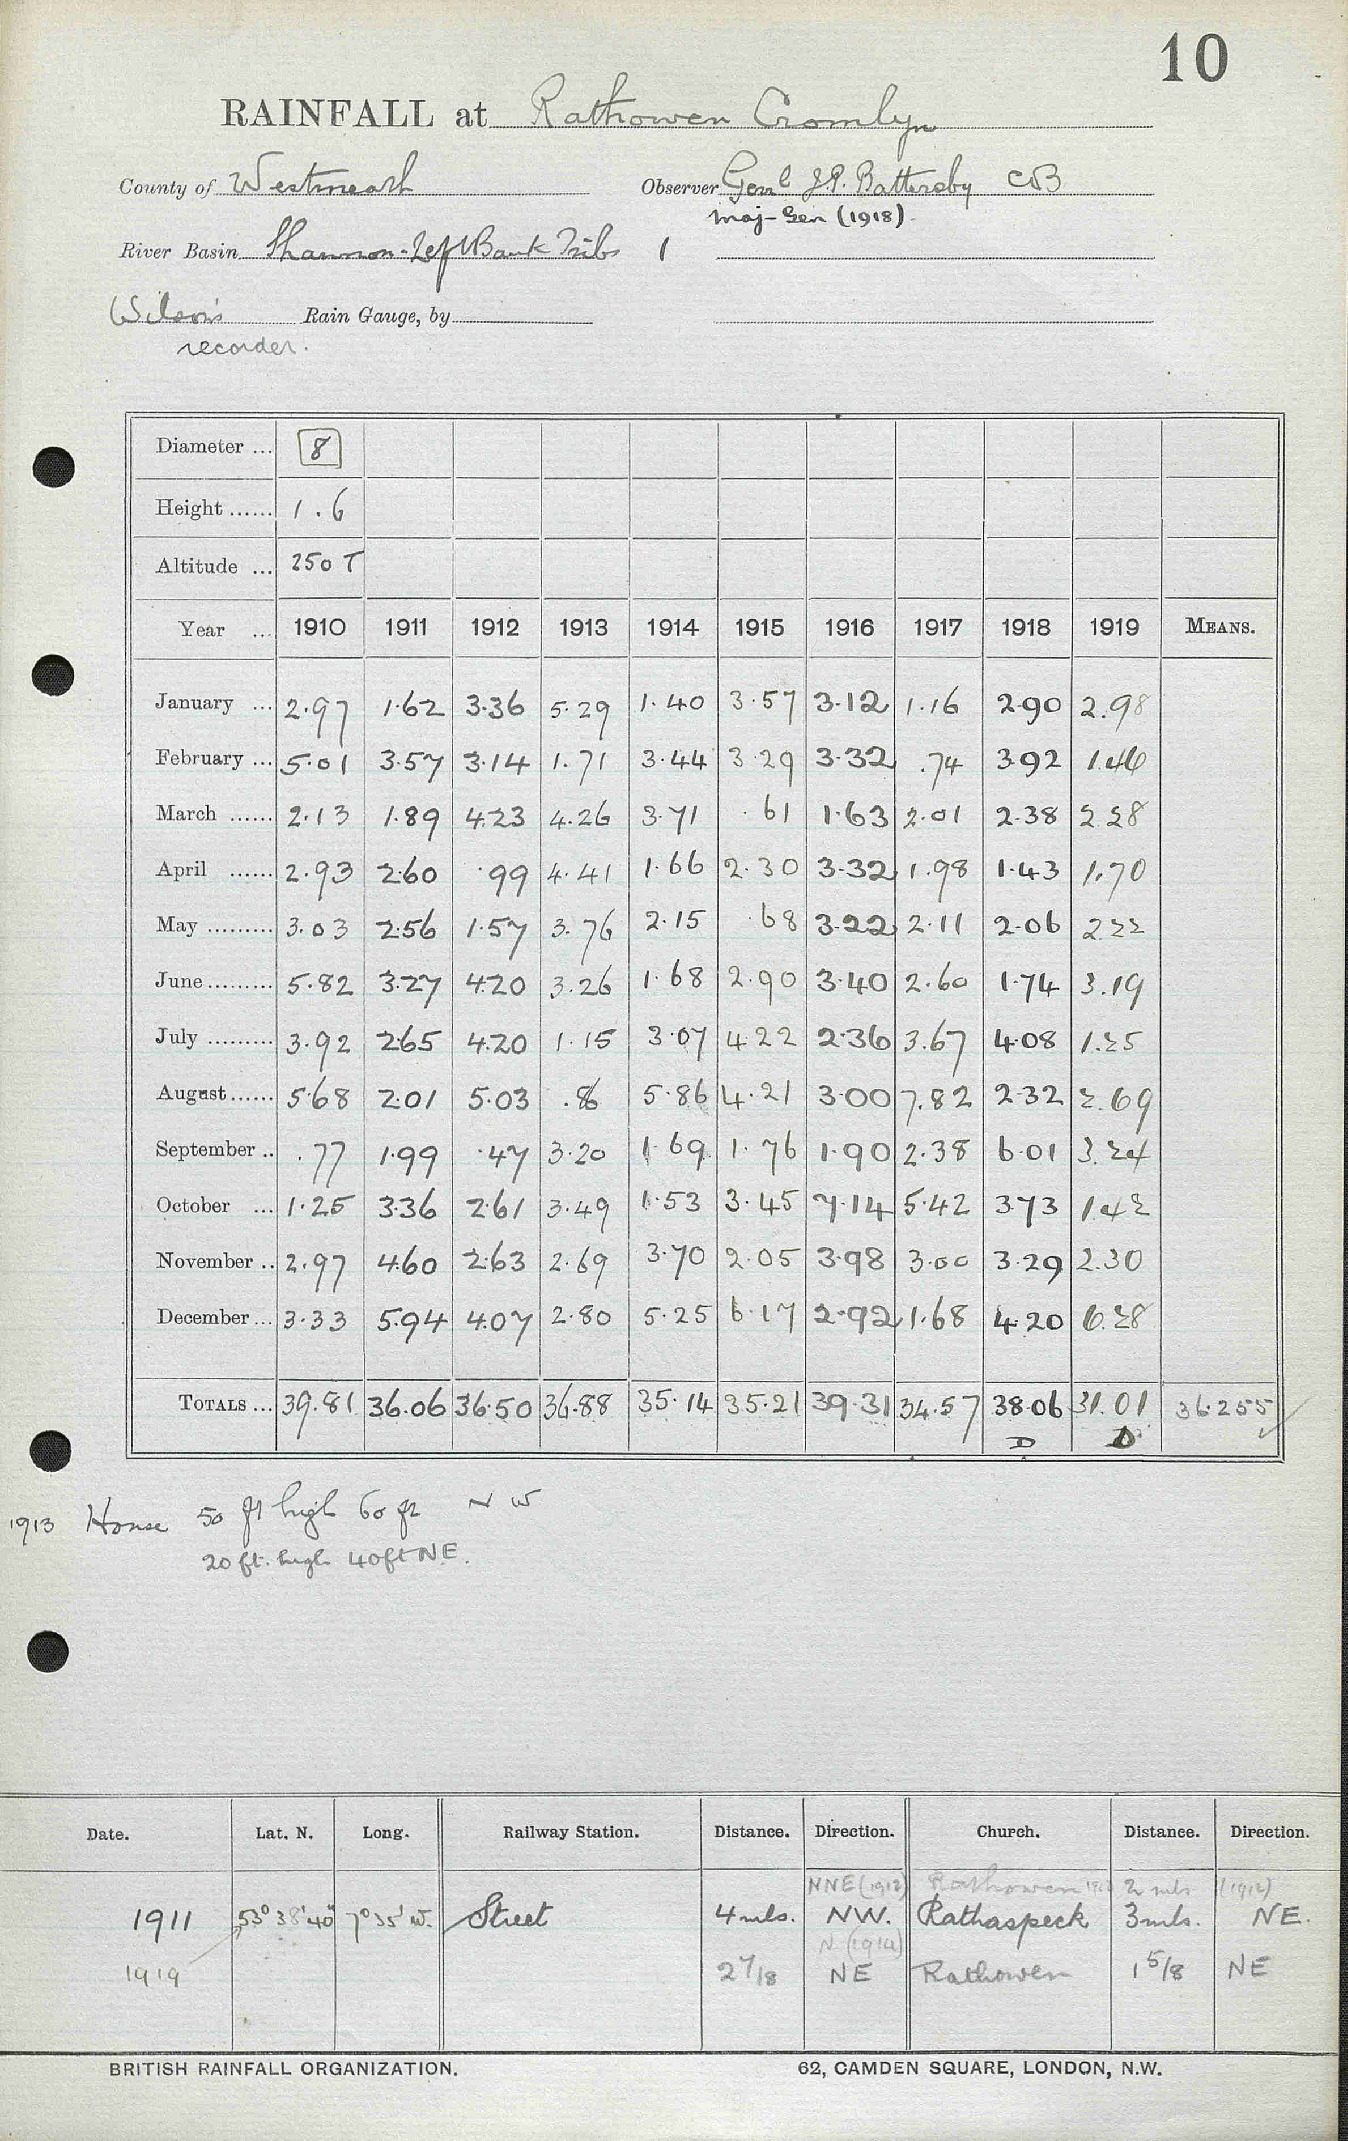 10
RAINFALL at Rathowen Cromlyn
County of Westmeath Observer Genl J.P. Battersby CB
Maj-Gen (1918).
River Basin Shannon-Left Bank Tribs 1
Wilson's Rain Gauge, by
recorder.
Diameter ... 8
Height ...... 1.6
Altitude ... 250 T
Year ... 1910 1911 1912 1913 1914 1915 1916 1917 1918 1919 MEANS.
January ... 2.97 1.62 3.36 5.29 1.40 3.57 3.12 1.16 2.90 2.98
February ... 5.01 3.57 3.14 1.71 3.44 3.29 3.32 .74 3.92 1.46
March ...... 2.13 1.89 4.23 4.26 3.71 .61 1.63 2.01 2.38 2.28
April ...... 2.93 2.60 .99 4.41 1.66 2.30 3.32 1.98 1.43 1.70
May ......... 3.03 2.56 1.57 3.76 2.15 .68 3.22 2.11 2.06 2.22
June ......... 5.82 3.27 4.20 3.26 1.68 2.90 3.40 2.60 1.74 3.19
July ......... 3.92 2.65 4.20 1.15 3.07 4.22 2.36 3.67 4.08 1.25
August ...... 5.68 2.01 5.03 .86 5.86 4.21 3.00 7.82 2.32 2.69
September .. .77 1.99 .47 3.20 1.69 1.76 1.90 2.38 6.01 3.24
October ... 1.25 3.36 2.61 3.49 1.53 3.45 7.14 5.42 3.73 1.42
November .. 2.97 4.60 2.63 2.69 3.70 2.05 3.98 3.00 3.29 2.30
December ... 3.33 5.94 4.07 2.80 5.25 6.17 2.92 1.68 4.20 6.28
TOTALS ... 39.81 36.06 36.50 36.88 35.14 35.21 39.31 34.57 38.06 31.01 36.255
D D
1913 House 50 ft high 60 ft NW
20 ft. high 40 ft NE.
Date. Lat. N. Long. Railway Station. Distance. Direction. Church. Distance. Direction.
NNE (1912) Rathowen 1912 2 mls (1912)
1911 53° 38' 40" 7° 35' W. Street 4 mls. NW. Rathaspeck 3 mls. NE.
N (1914)
1919 2 7/8 NE Rathowen 1 5/8 NE
BRITISH RAINFALL ORGANIZATION. 62, CAMDEN SQUARE, LONDON, N.W.